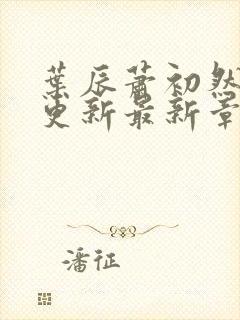 葉辰蕭初然
更新最新章
潘征